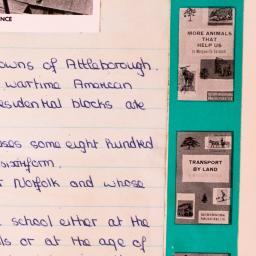 ENCE
owns of Attleborough.
wartime American
esidential blocks are
oses some eight hundred
sixthform.
r Norfolk and whose
school either at the
ls or at the age of
MORE ANIMALS
THAT
HELP US
TRANSPORT
BY LAND